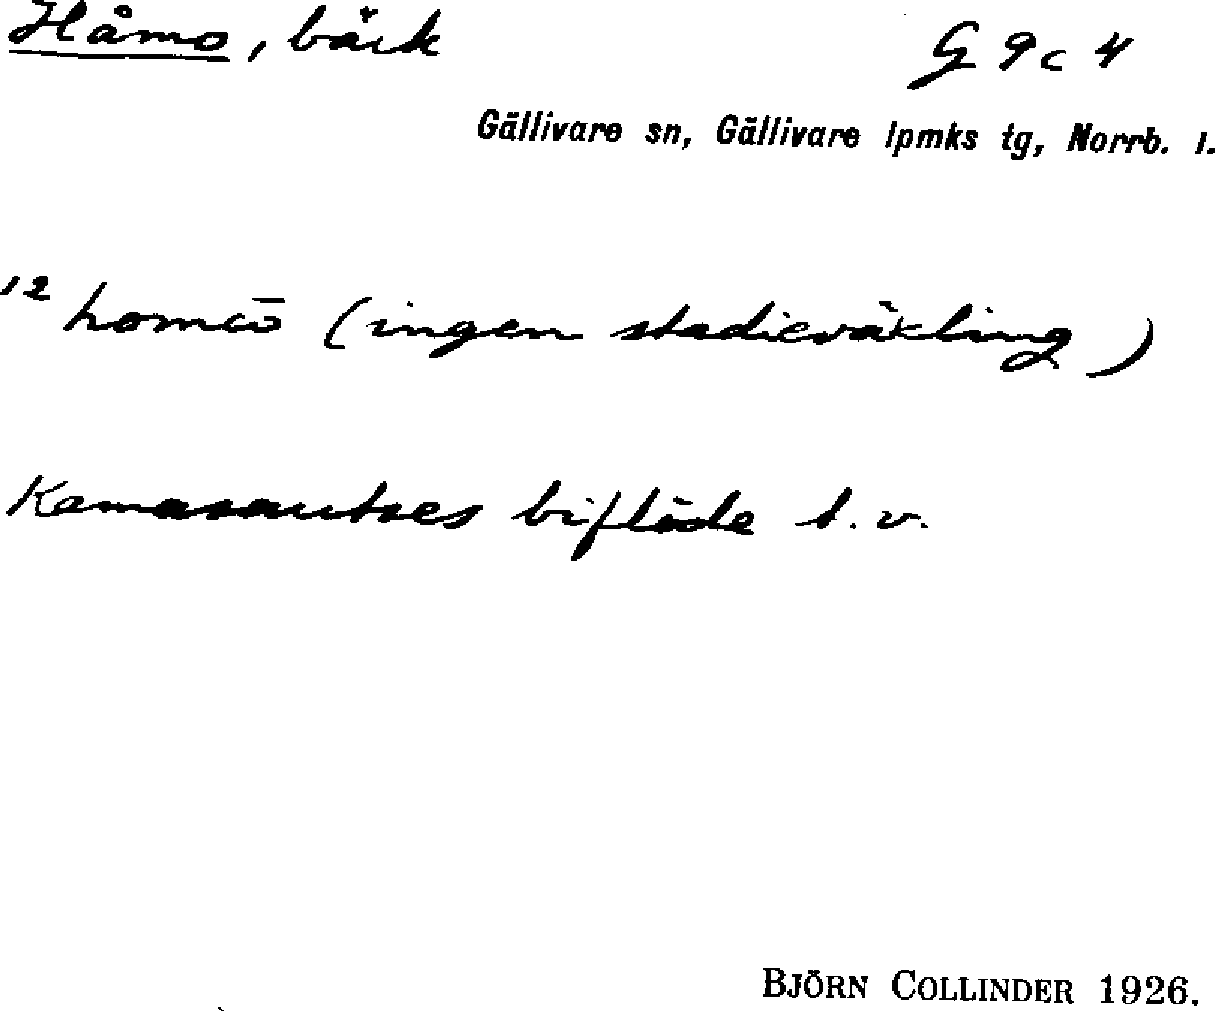 Håmo, bäck
G 9c 4
Gällivare sn, Gällivare lpmks tg, Norrb. l.
12 homɷ̄ (ingen stadieväxling)
biflöde t.v.
BJÖRN COLLINDER 1926.